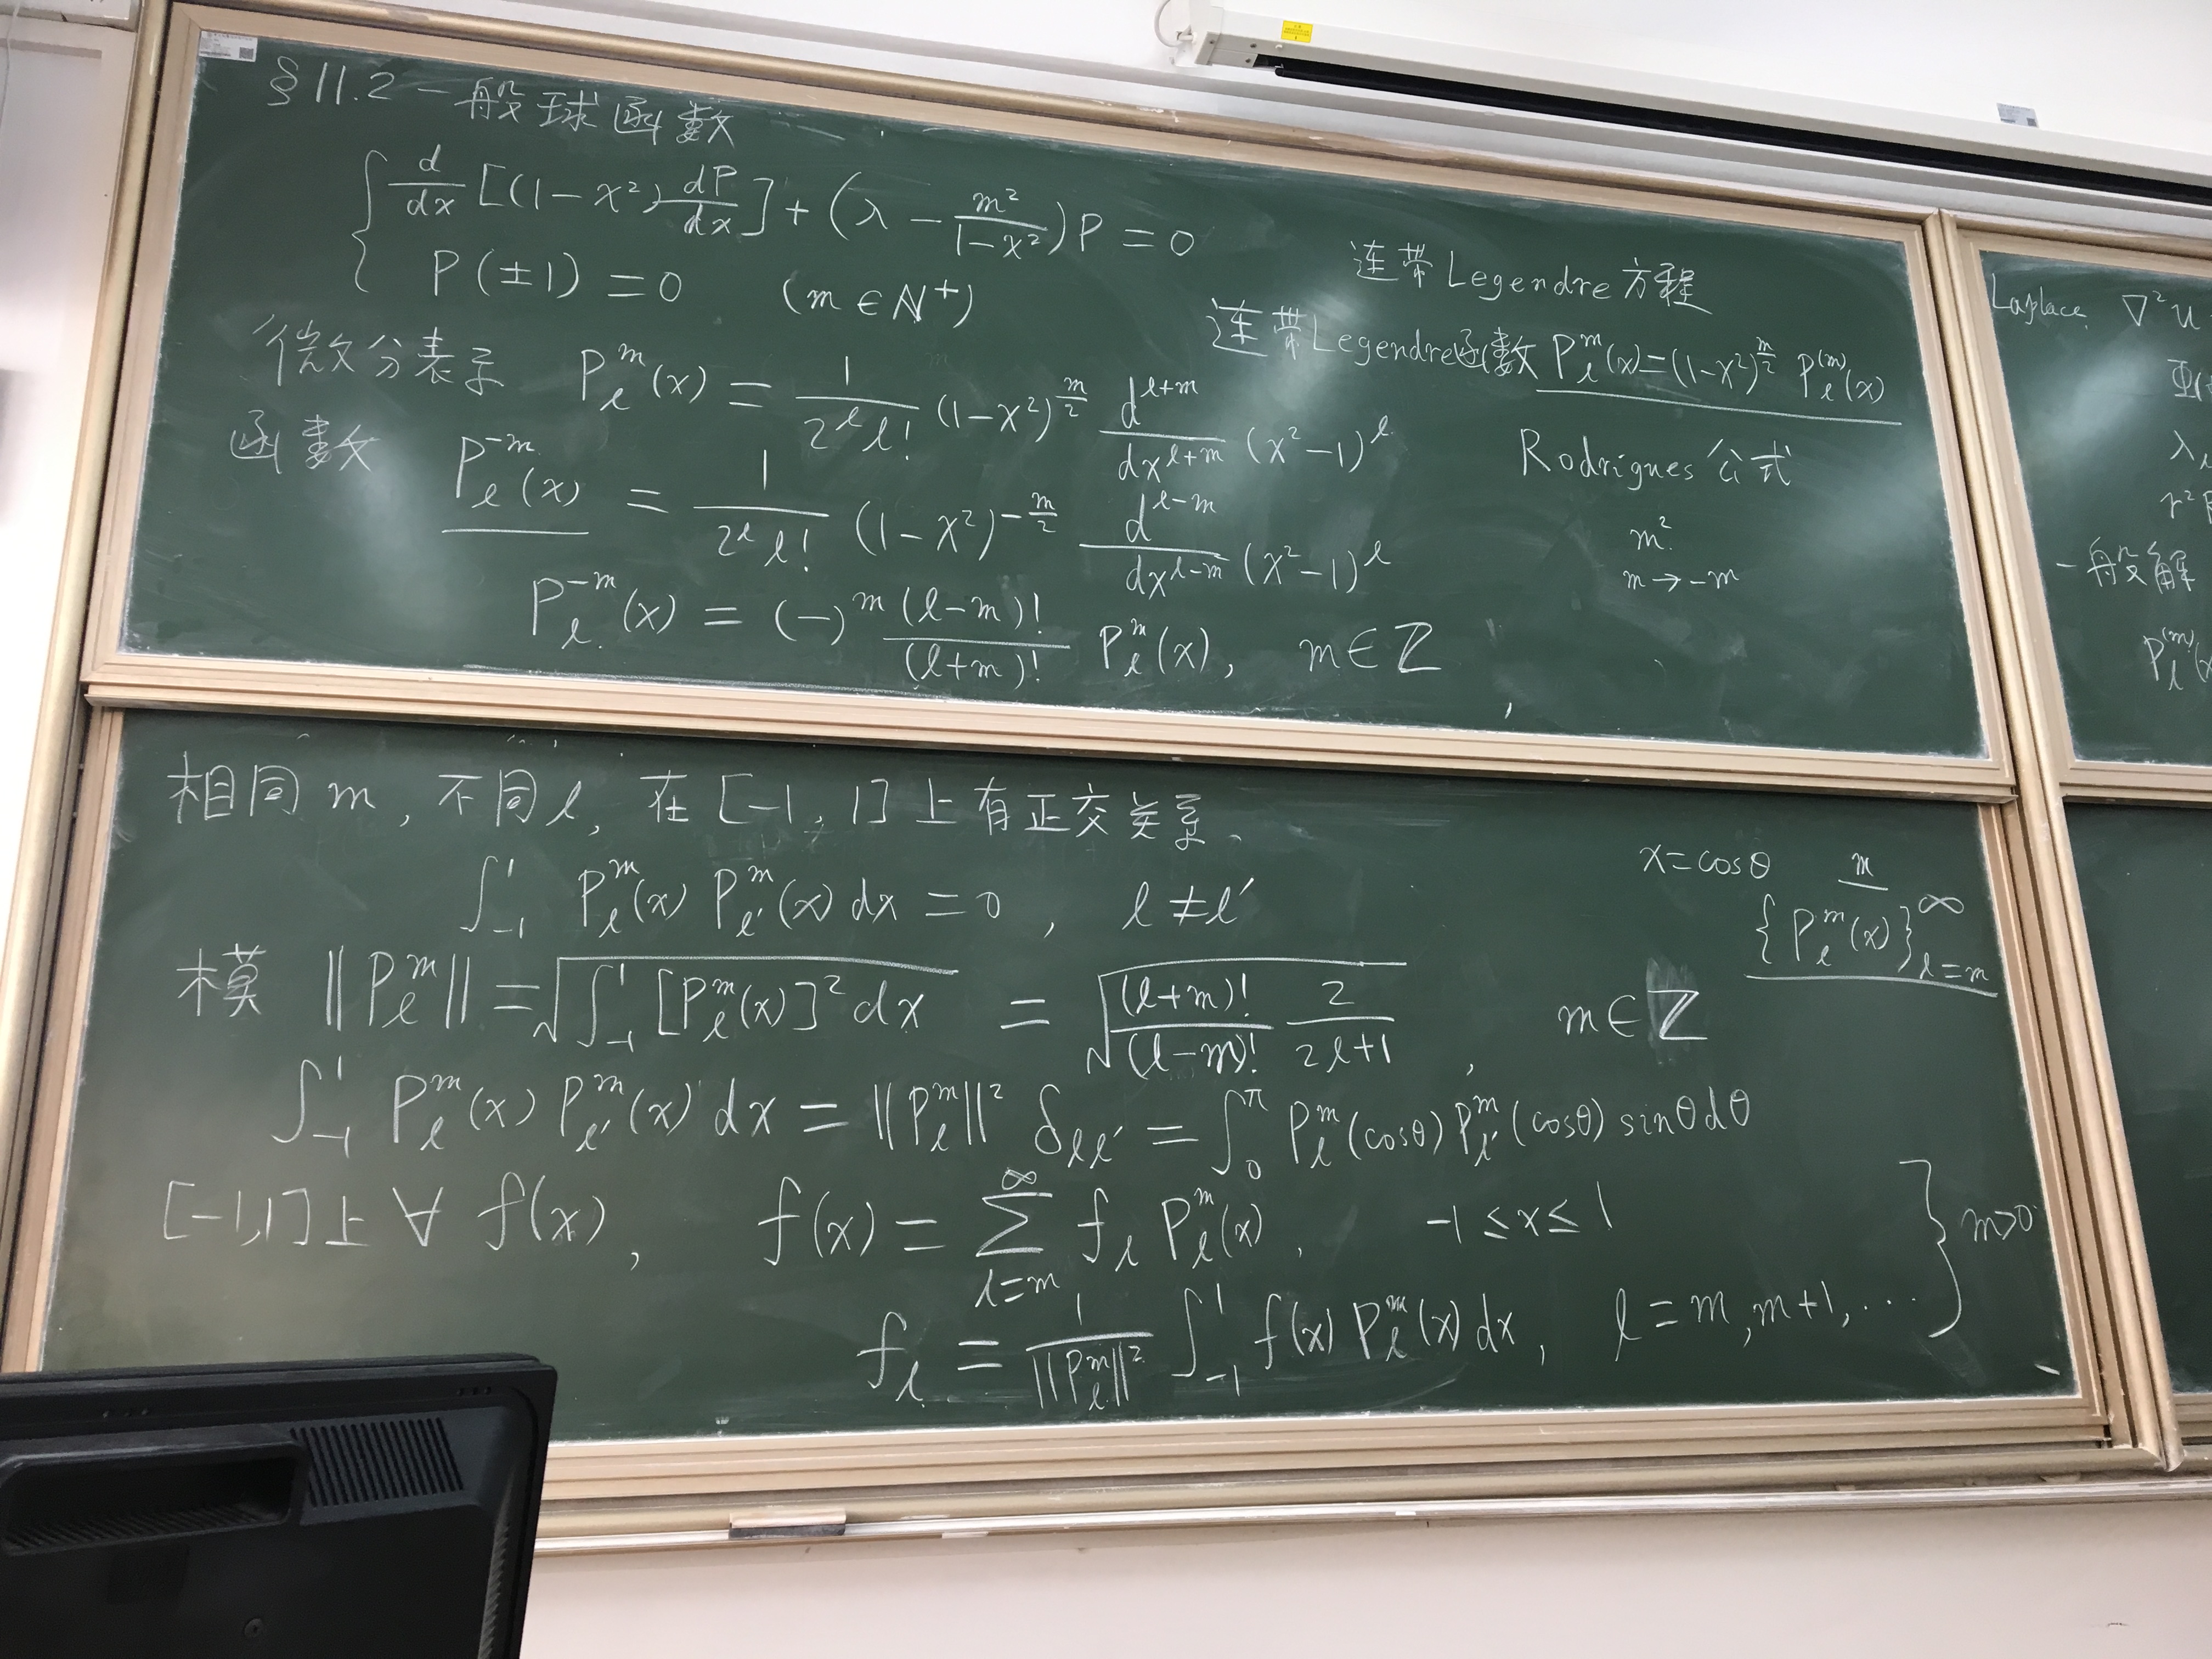 §11.2 一般球函数
d/dx [(1-x²) dP/dx] + (λ - m²/(1-x²)) P = 0
连带Legendre方程
P(±1) = 0 (m∈N⁺)
连带Legendre函数 P_l^m(x) = (1-x²)^{m/2} P_l^{(m)}(x)
微分表示 P_l^m(x) = 1/(2^l l!) (1-x²)^{m/2} d^{l+m}/dx^{l+m} (x²-1)^l
Rodrigues 公式
函数 P_l^{-m}(x) = 1/(2^l l!) (1-x²)^{-m/2} d^{l-m}/dx^{l-m} (x²-1)^l
m²
m→-m
P_l^{-m}(x) = (-)^m (l-m)!/(l+m)! P_l^m(x), m∈Z
相同m, 不同l, 在[-1,1]上有正交关系
∫_{-1}^{1} P_l^m(x) P_{l'}^m(x) dx = 0, l≠l'
x=cosθ m
{P_l^m(x)}_{l=m}^∞
模 ||P_l^m|| = √(∫_{-1}^{1} [P_l^m(x)]² dx) = √((l+m)!/(l-m)! 2/(2l+1)), m∈Z
∫_{-1}^{1} P_l^m(x) P_{l'}^m(x) dx = ||P_l^m||² δ_{ll'} = ∫_0^π P_l^m(cosθ) P_{l'}^m(cosθ) sinθdθ
[-1,1]上 ∀ f(x), f(x) = ∑_{l=m}^∞ f_l P_l^m(x), -1≤x≤1
f_l = 1/||P_l^m||² ∫_{-1}^{1} f(x) P_l^m(x) dx, l=m,m+1,⋯
m>0
Laplace ∇²u
λ
r²
一般解
P_l^{(m)}(x